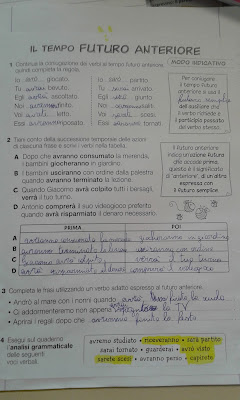 IL TEMPO FUTURO ANTERIORE
1 Continua la coniugazione dei verbi al tempo futuro anteriore, quindi completa le regole.
MODO INDICATIVO
Io avrò giocato.
Tu avrai bevuto.
Egli ascoltato.
Noi
Voi letto.
Essi
Io sarò partito.
Tu sarai arrivato.
Egli sarà giunto.
Noi
Voi scesi.
Essi tornati.
Per coniugare il tempo futuro anteriore si usa il futuro semplice dell'ausiliare che il verbo richiede e il participio passato del verbo stesso.
2 Tieni conto della successione temporale delle azioni di ciascuna frase e scrivi i verbi nella tabella.
A Dopo che avranno consumato la merenda, i bambini giocheranno in giardino.
B I bambini usciranno con ordine dalla palestra quando avranno terminato la lezione.
C Quando Giacomo avrà colpito tutti i bersagli, verrà il tuo turno.
D Antonio comprerà il suo videogioco preferito quando avrà risparmiato il denaro necessario.
Il futuro anteriore indica un'azione futura che accade prima, questa è il significato di anteriore, di un'altra espressa con il futuro semplice.
PRIMA
POI
A avranno consumato la merenda giocheranno in giardino
B avranno terminato la lezione usciranno con ordine
C avrà colpito verrà il tuo turno
D avrà risparmiato il denaro comprerà il videogioco
3 Completa le frasi utilizzando un verbo adatto espresso al futuro anteriore.
• Andrò al mare con i nonni quando avrò finito le scuole
• Ci addormenteremo non appena la TV
• Aprirai i regali dopo che avranno finito la festa
4 Esegui sul quaderno l'analisi grammaticale delle seguenti voci verbali.
avremo studiato • riceveranno • sarà partito
sarai tornato • guarderai • avrò visto
sarete scesi • avranno perso • capirete